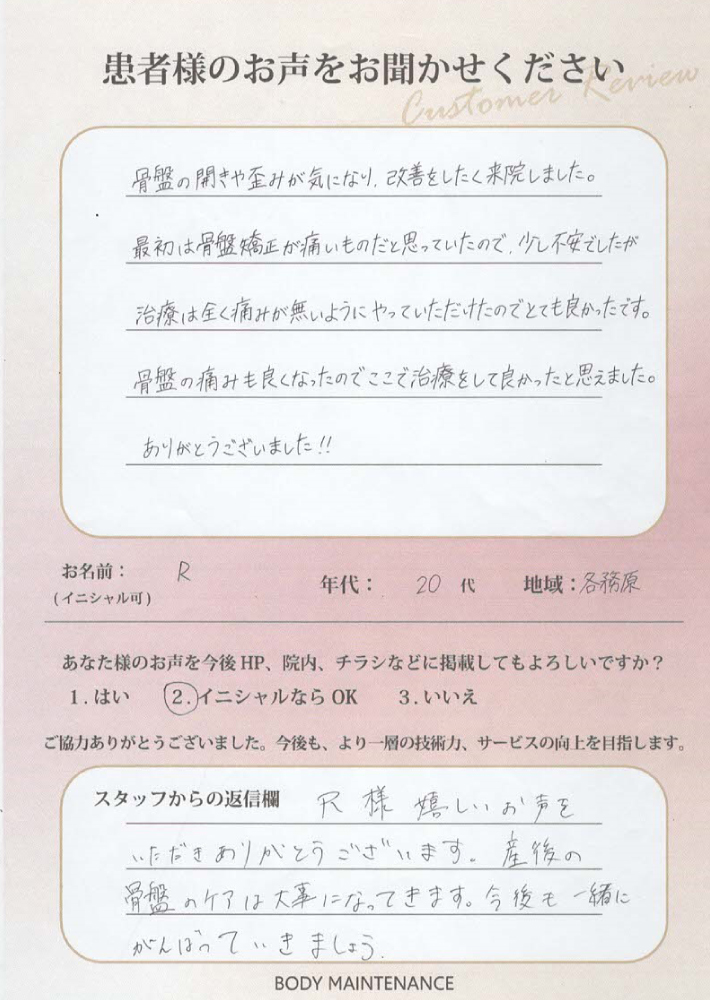 患者様のお声をお聞かせください
Customer Review
骨盤の開きや歪みが気になり、改善をしたく来院しました。
最初は骨盤矯正が痛いものだと思っていたので、少し不安でしたが
治療は全く痛みが無いようにやっていただけたのでとても良かったです。
骨盤の痛みも良くなったのでここで治療をして良かったと思えました。
ありがとうございました!!
お名前： R
(イニシャル可)
年代： 20 代 地域：各務原
あなた様のお声を今後 HP、院内、チラシなどに掲載してもよろしいですか？
1.はい 2.イニシャルなら OK 3.いいえ
ご協力ありがとうございました。今後も、より一層の技術力、サービスの向上を目指します。
スタッフからの返信欄 R様 嬉しいお声を
いただきありがとうございます。産後の
骨盤のケアは大事になってきます。今後も一緒に
がんばっていきましょう.
BODY MAINTENANCE